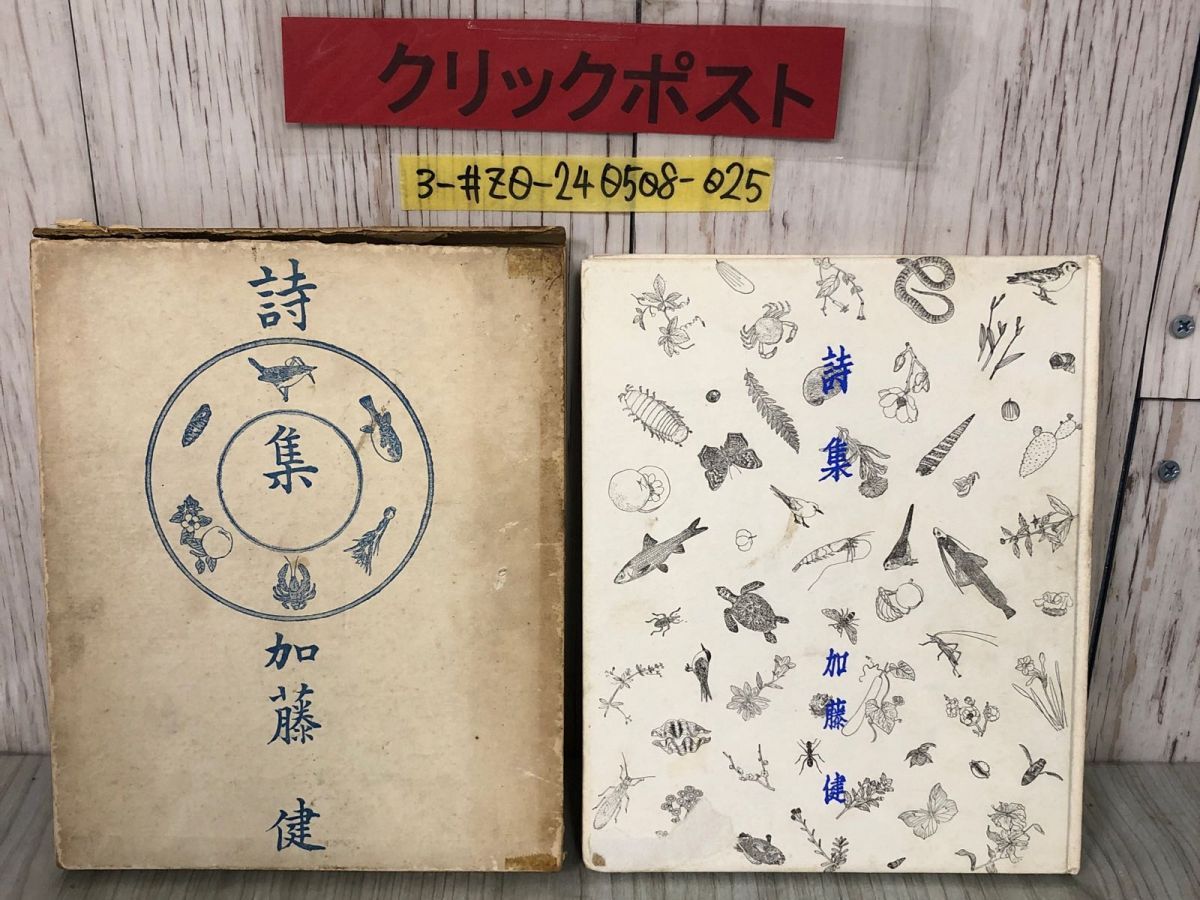 クリックポスト
3-#Z0-240508-025
詩集
加藤 健
詩集
加藤健